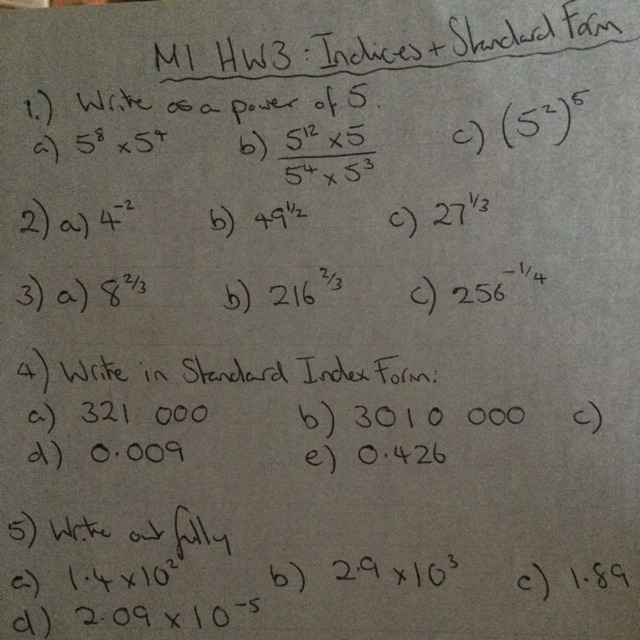 M1 HW3: Indices + Standard Form
1.) Write as a power of 5.
a) 5⁸ × 5⁴ b) 5¹² × 5 / 5⁴ × 5³ c) (5²)⁵
2) a) 4⁻² b) 49^1/2 c) 27^1/3
3) a) 8^2/3 b) 216^2/3 c) 256^-1/4
4) Write in Standard Index Form:
a) 321 000 b) 3010 000 c)
d) 0.009 e) 0.426
5) Write out fully
a) 1.4 × 10² b) 2.9 × 10³ c) 1.89
d) 2.09 × 10⁻⁵